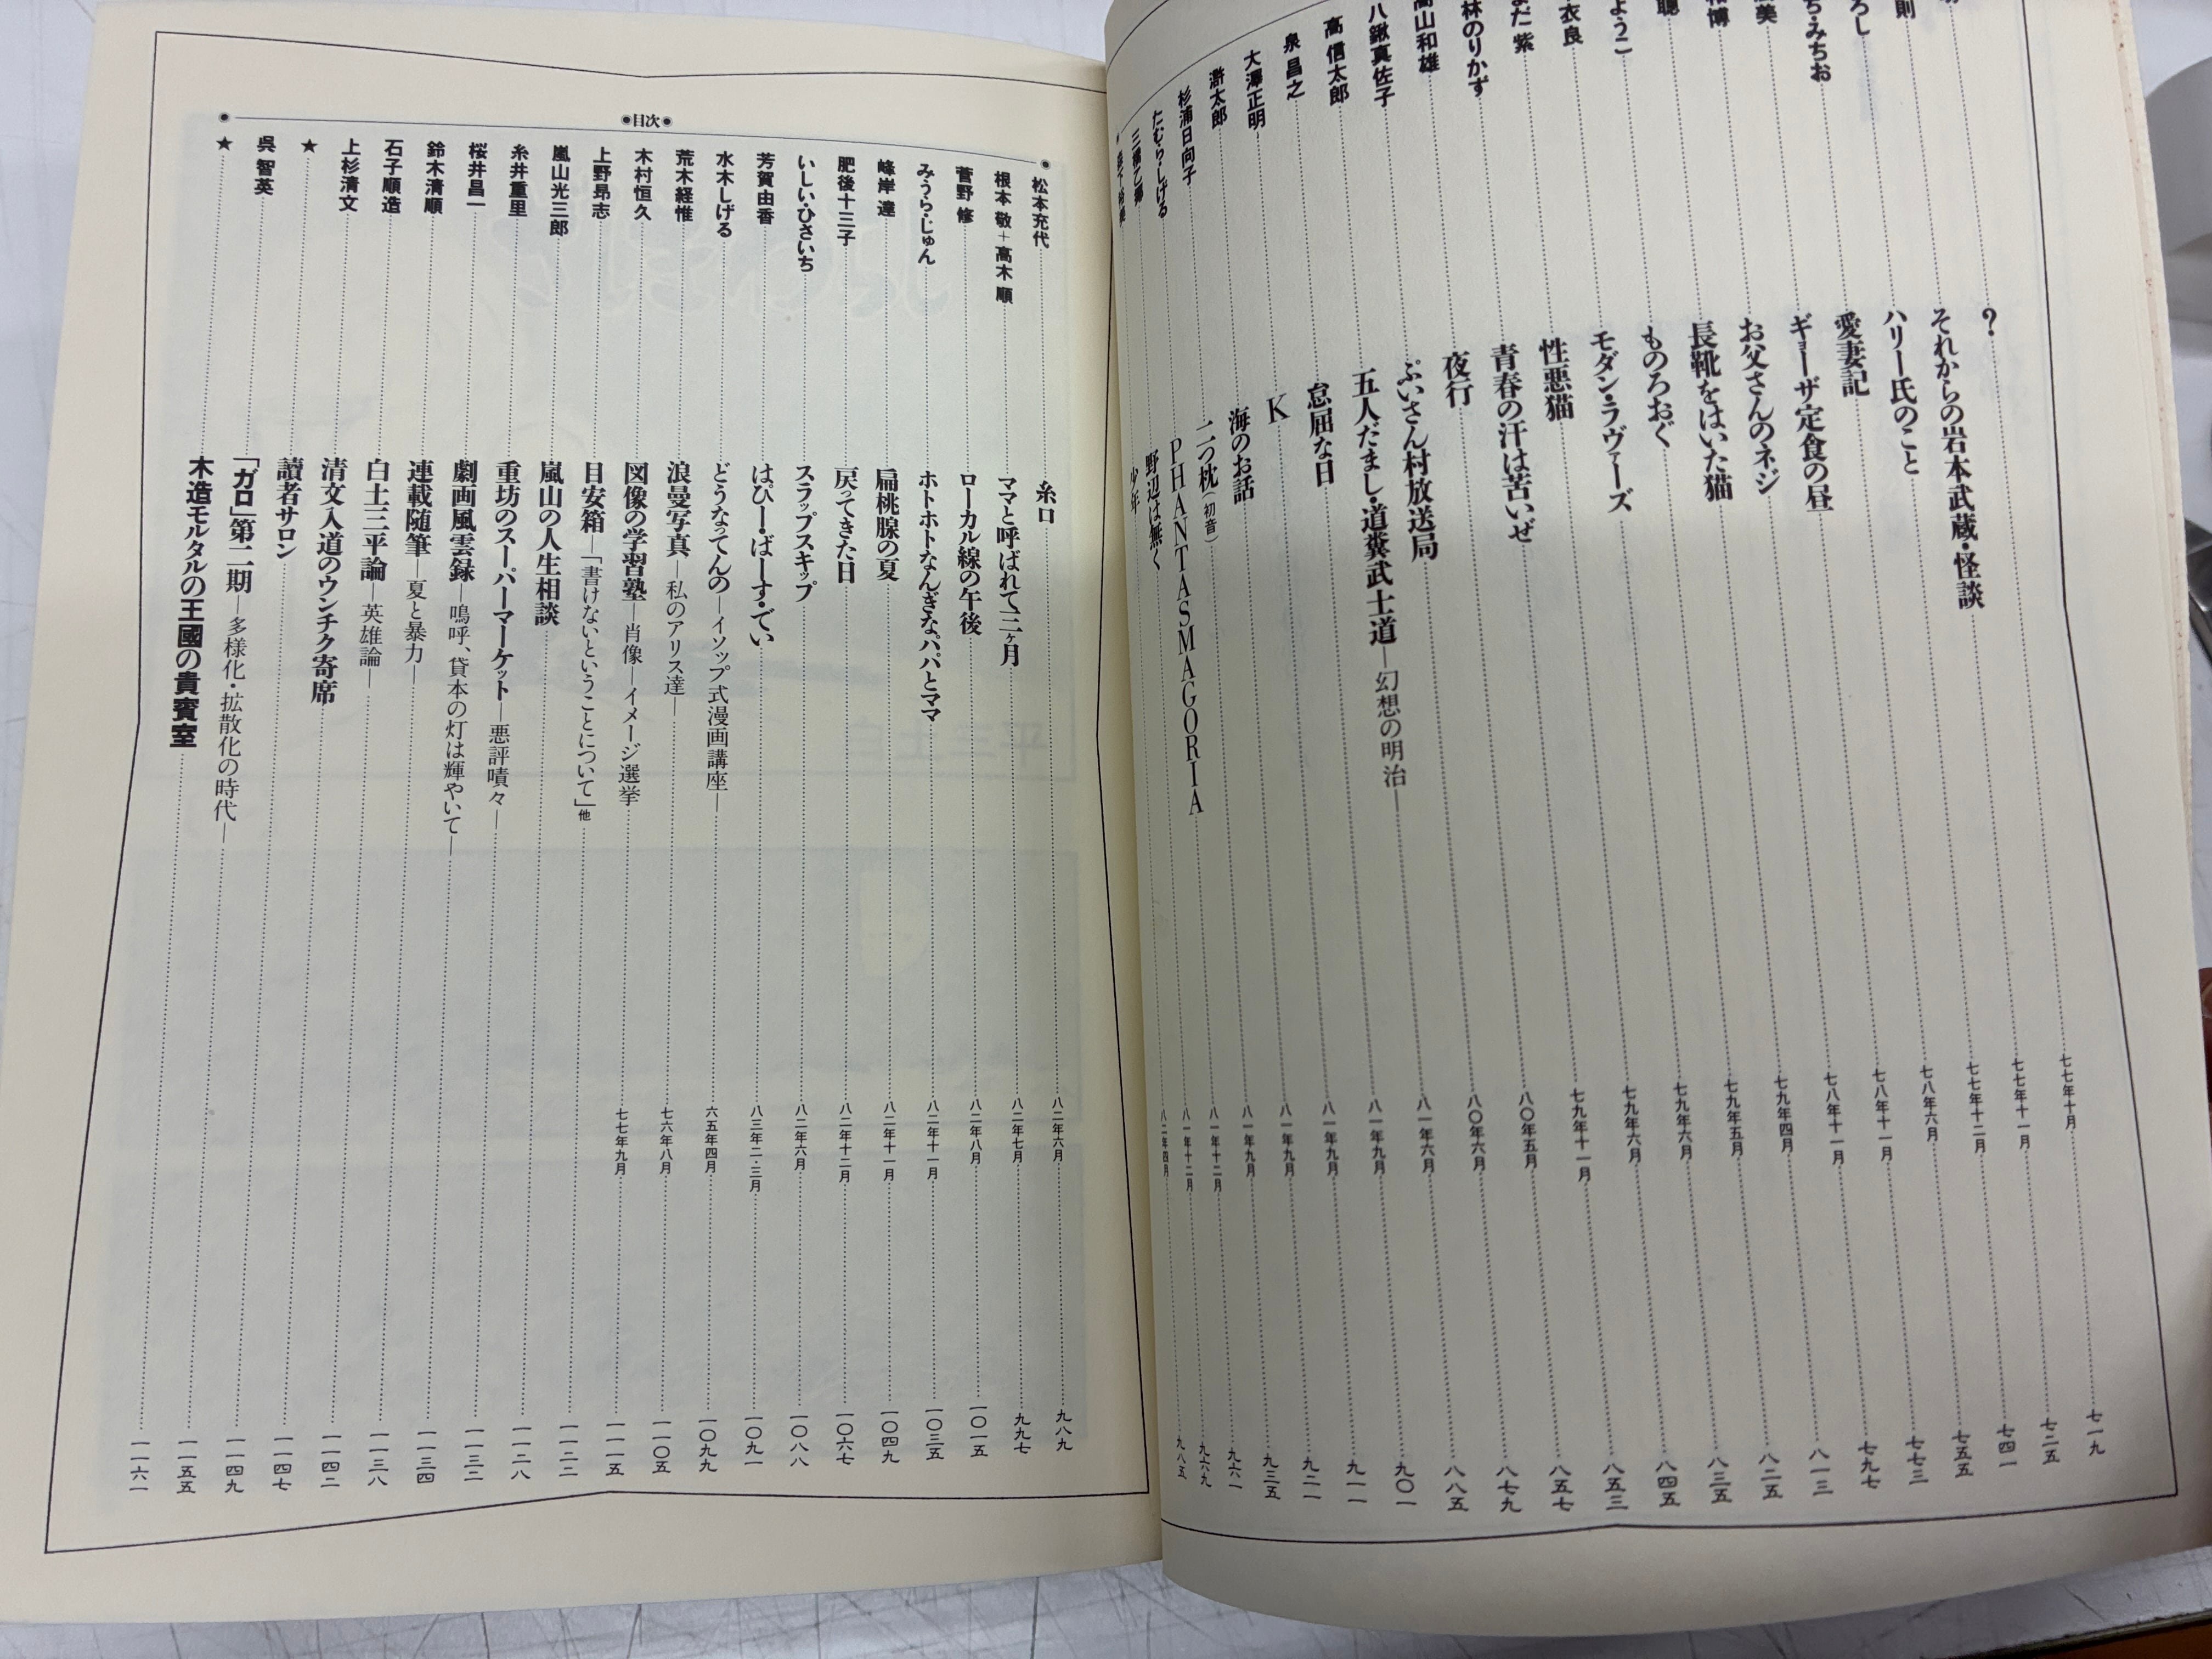 ? 七七年十月 七一九
則 それからの岩本武蔵・怪談 七七年十一月 七二五
ろし ハリー氏のこと 七七年十二月 七四一
ち・みちお 愛妻記 七八年六月 七五五
美 ギョーザ定食の昼 七八年十一月 七七三
博 お父さんのネジ 七八年十一月 七九七
聰 長靴をはいた猫 七九年四月 八一三
ようこ ものろおぐ 七九年五月 八二五
衣良 モダン・ラヴァーズ 七九年六月 八三五
まだ 紫 性悪猫 七九年六月 八四五
林のりかず 青春の汗は苦いぜ 七九年十一月 八五三
高山和雄 夜行 八〇年五月 八五七
八鍬真佐子 ぶいさん村放送局 八〇年六月 八七九
高 信太郎 五人だまし・道糞武士道―幻想の明治― 八一年六月 八八五
泉 昌之 怠屈な日 八一年九月 九〇一
大澤正明 K 八一年九月 九一一
太郎 海のお話 八一年九月 九二一
杉浦日向子 二つ枕(初音) 八一年九月 九三五
たむら・しげる PHANTASMAGORIA 八一年十二月 九六一
三橋乙 野辺は無く 八一年十二月 九六九
少年 八二年四月 九八五
●目次●
松本充代 糸口 八二年六月 九八九
根本 敬＋高木 順 ママと呼ばれて三ヶ月 八二年七月 九九七
菅野 修 ローカル線の午後 八二年八月 一〇一五
みうら・じゅん ホトホトなんぎなパパとママ 八二年十一月 一〇三五
峰岸 達 扁桃腺の夏 八二年十一月 一〇四九
肥後十三子 戻ってきた日 八二年十二月 一〇六七
いしい・ひさいち スラップスキップ 八二年六月 一〇八八
芳賀由香 はぴー・ばーす・でい 八三年二・三月 一〇九一
水木しげる どうなってんの―イソップ式漫画講座― 六五年四月 一〇九九
荒木経惟 浪曼写真―私のアリス達― 七六年八月 一一〇五
木村恒久 図像の学習塾―肖像―イメージ選挙 七七年九月 一一一五
上野昂志 目安箱―「書けないということについて」他 一一二二
嵐山光三郎 嵐山の人生相談 一一二八
糸井重里 重坊のスーパーマーケット―悪評嘖々― 一一三二
桜井昌一 劇画風雲録―嗚呼、貸本の灯は輝やいて― 一一三四
鈴木清順 連載随筆―夏と暴力― 一一三八
石子順造 白土三平論―英雄論― 一一四二
上杉清文 清文入道のウンチク寄席 一一四七
★ 讀者サロン 一一四九
呉 智英 「ガロ」第二期―多様化・拡散化の時代― 一一五五
★ 木造モルタルの王國の貴賓室 一一六一